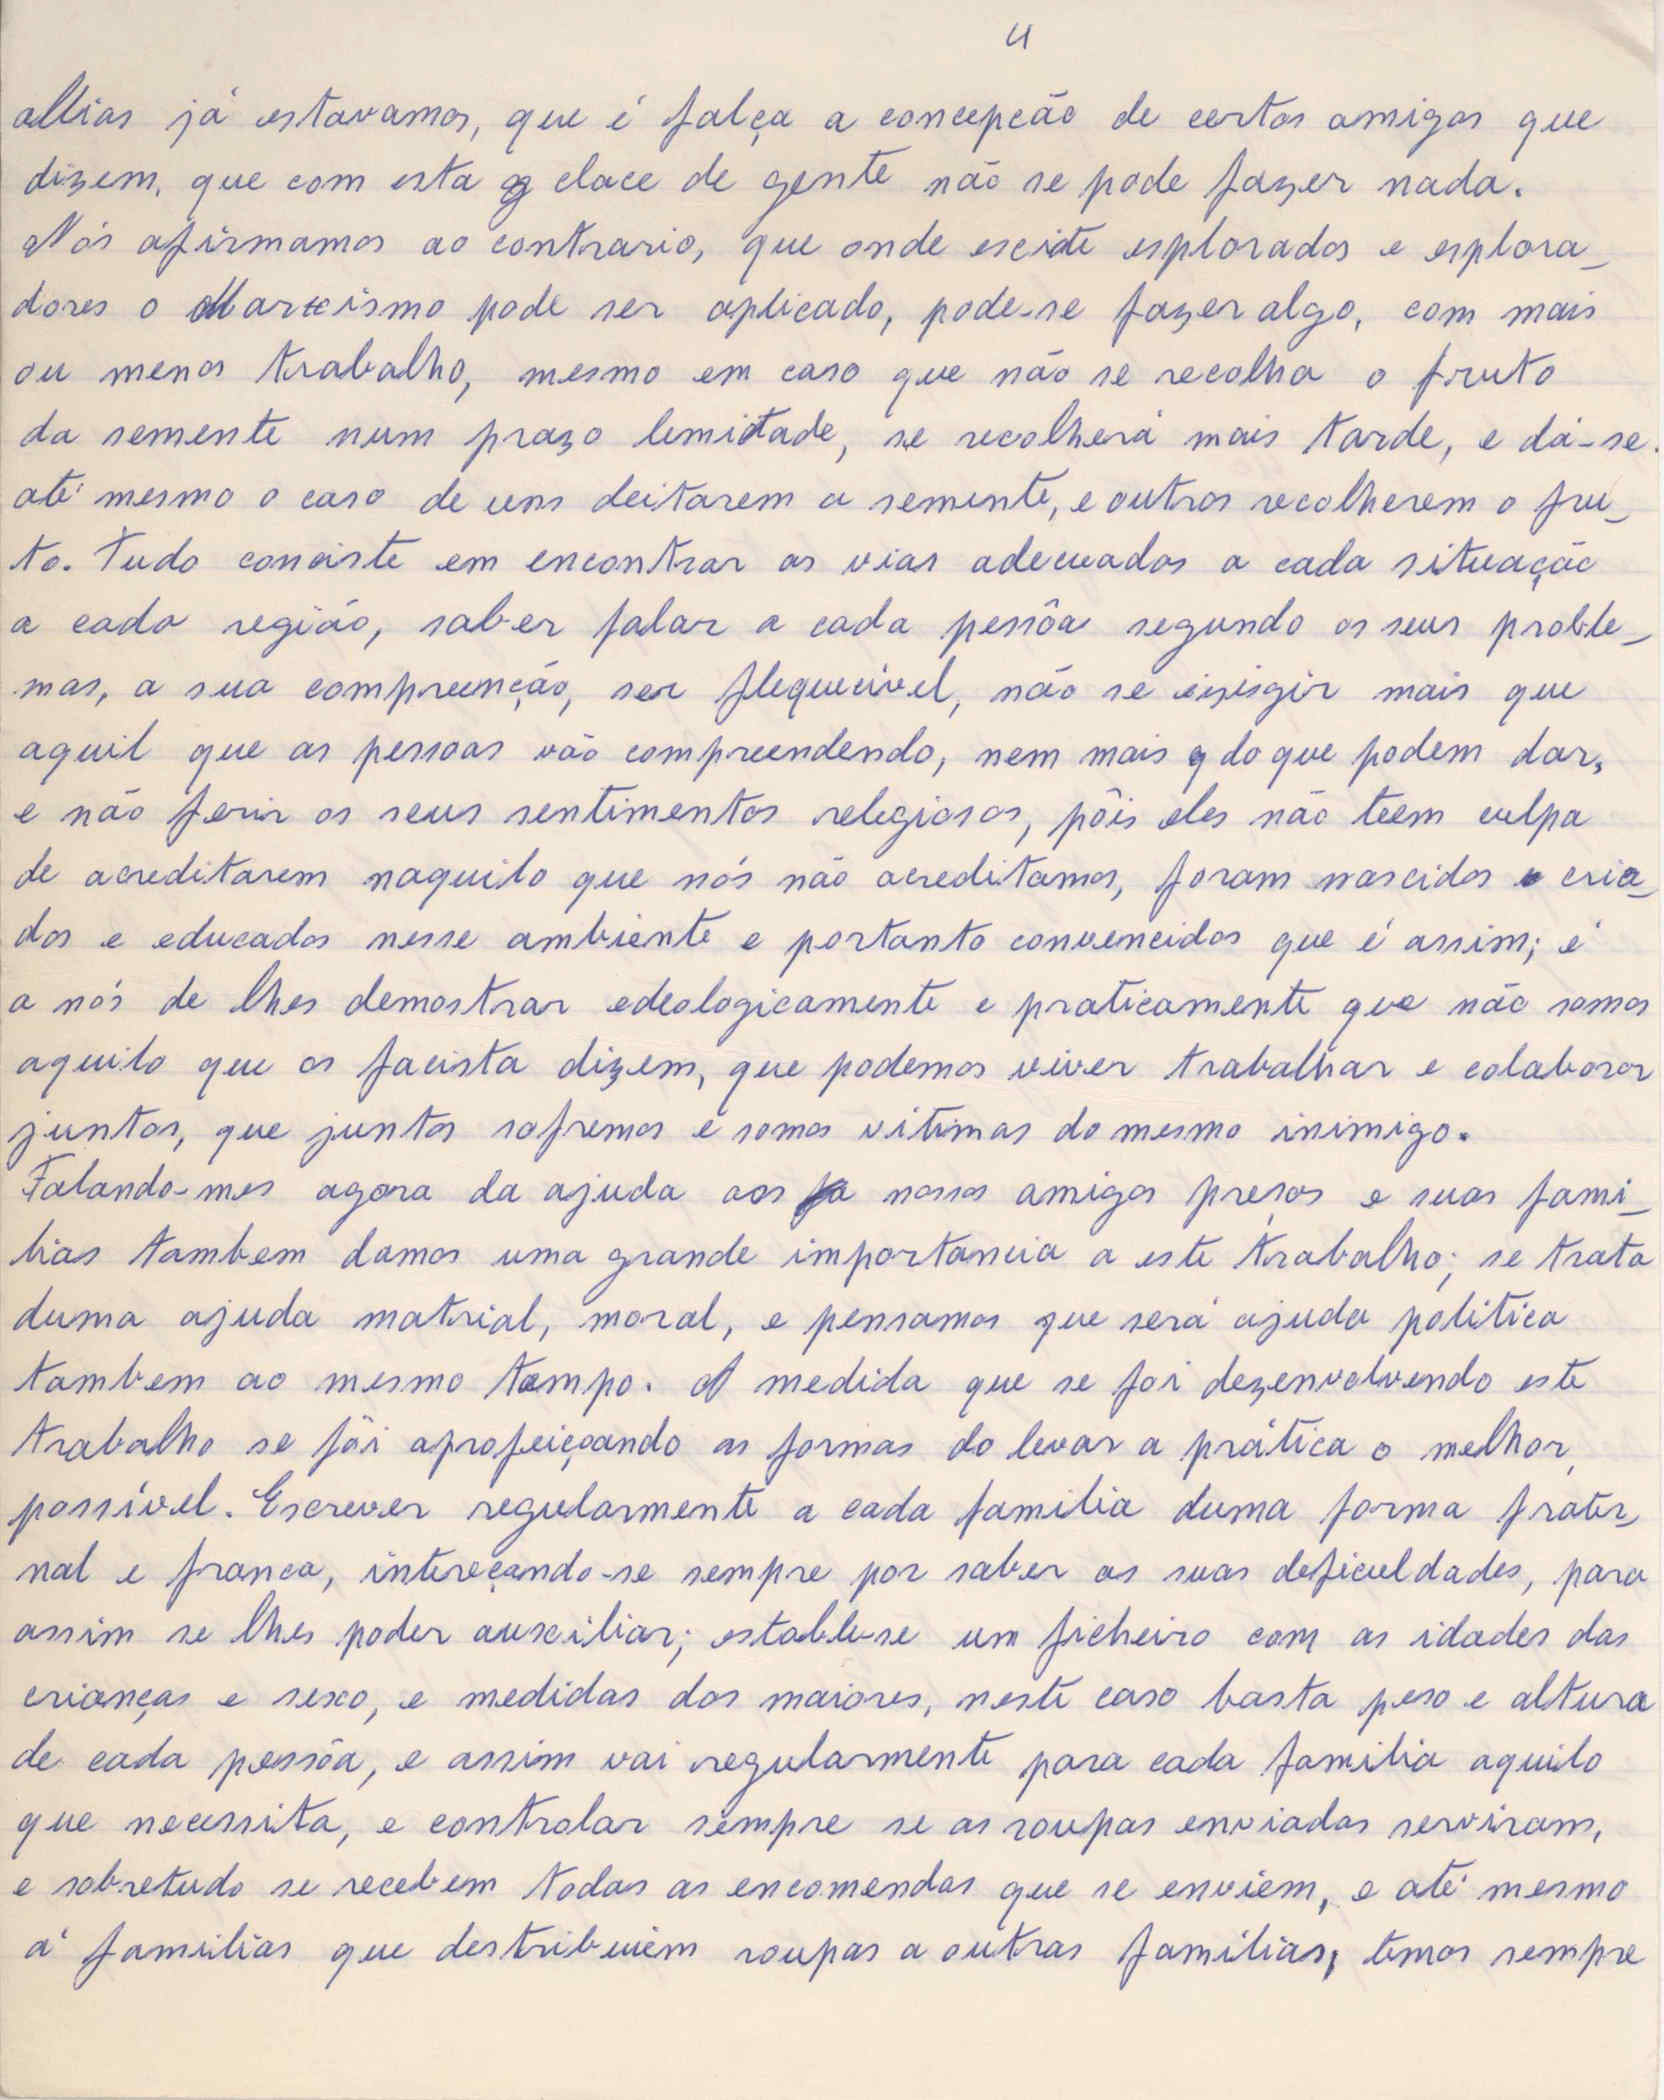 4
allias já estavamos, que é falça a concepcão de certos amigos que
dizem, que com esta clace de gente não se pode fazer nada.
Nós afirmamos ao contrario, que onde escite esplorados e esplora_
dores o Marxismo pode ser aplicado, pode-se fazer algo, com mais
ou menos trabalho, mesmo em caso que não se recolha o fruto
da semente num prazo lemitade, se recolherá mais tarde, e dá-se
até mesmo o caso de uns deitarem a semente, e outros recolherem o fru_
to. Tudo conciste em encontrar as vias adecuadas a cada situação
a cada região, saber falar a cada pessôa segundo os seus proble_
mas, a sua compreenção, ser flequecivel, não se exisgir mais que
aquil que as pessoas vão compreendendo, nem mais do que podem dar,
e não ferir os seus sentimentos relegiosos, pôis eles não teem culpa
de acreditarem naquilo que nós não acreditamos, foram nascidos e cria_
dos e educados nesse ambiente e portanto convencidos que é assim; é
a nós de lhes demostrar edeologicamente e praticamente que não somos
aquilo que os facista dizem, que podemos viver trabalhar e colaborar
juntos, que juntos sofremos e somos vitimas do mesmo inimigo.
Falando-mes agora da ajuda aos nossos amigos presos e suas fami_
lias tambem damos uma grande importancia a este trabalho; se trata
duma ajuda matrial, moral, e pensamos que será ajuda politica
tambem ao mesmo tempo. A medida que se foi dezenvolvendo este
trabalho se fôi aprofeiçoando as formas do levar a prática o melhor
possível. Escrever regularmente a cada familia duma forma frater_
nal e franca, intereçando-se sempre por saber as suas deficuldades, para
assim se lhes poder auxciliar; estable-se um ficheiro com as idades das
crianças e sexo, e medidas dos maiores, neste caso basta peso e altura
de cada pessôa, e assim vai regularmente para cada familia aquilo
que necessita, e controlar sempre se as roupas enviadas serviram,
e sobretudo se recebem todas as encomendas que se enviem, e até mesmo
á familias que destribuiem roupas a outras familias, temos sempre